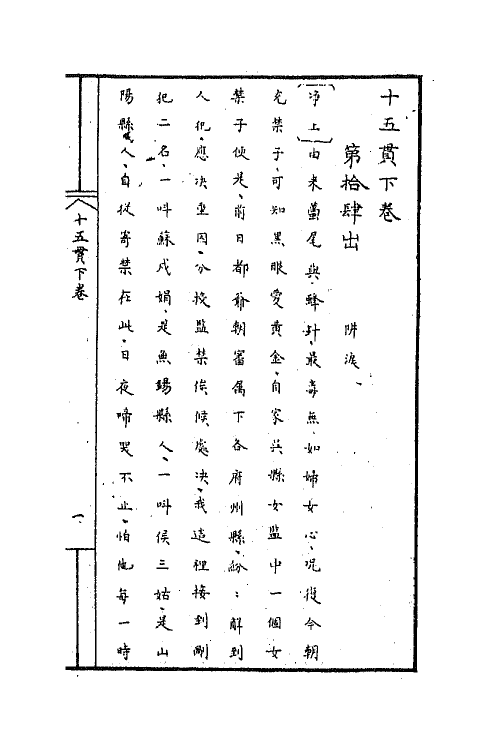 十五貫下卷
第拾肆出　阱淚
淨上由来蠆尾與蜂針最毒無如婦女心况復今朝
充禁子可知黑眼愛黄金自家吳縣女監中一個女
禁子便是前日都爺朝審属下各府州縣紛〻解到
人犯應决重囚分投監禁俟候處决我這裡接到剮
犯二名一叫蘇戍娟是魚錫縣人一叫侯三姑是山
陽縣人自從寄禁在此日夜啼哭不止怕他每一時
十五貫下卷
一